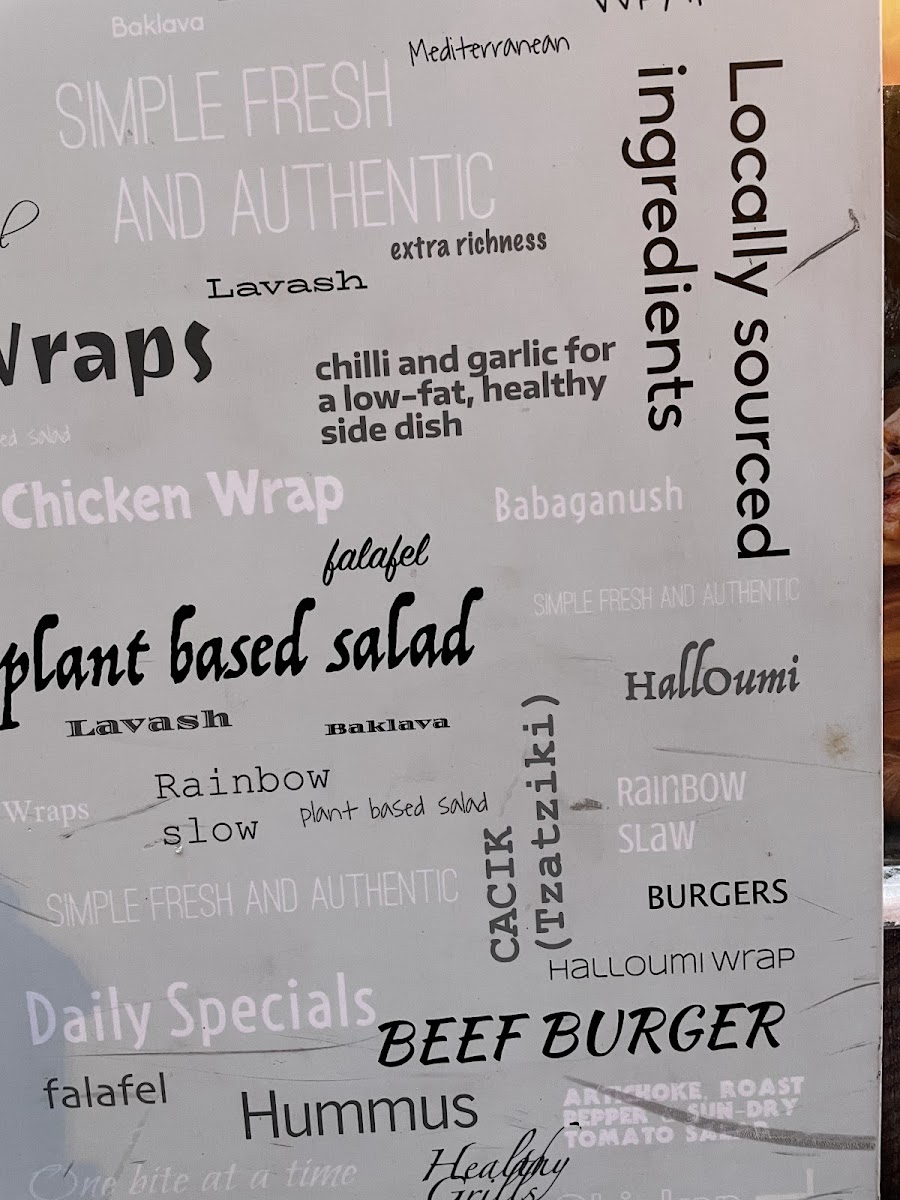 Baklava
Mediterranean
SIMPLE FRESH
AND AUTHENTIC
Locally sourced
ingredients
extra richness
Lavash
Wraps
chilli and garlic for
a low-fat, healthy
side dish
salad
Chicken Wrap
Babaganush
falafel
SIMPLE FRESH AND AUTHENTIC
plant based salad
Halloumi
Lavash
Baklava
CACIK
(Tzatziki)
Rainbow
slow
Wraps
plant based salad
RAINBOW
SLAW
SIMPLE FRESH AND AUTHENTIC
BURGERS
Halloumi wrap
Daily Specials
BEEF BURGER
falafel
Hummus
ARTICHOKE, ROAST
PEPPER & SUN-DRY
TOMATO SALAD
One bite at a time
Healthy
Grills